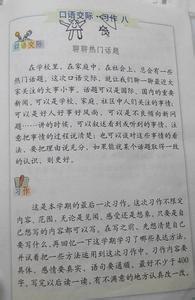 口语交际·习作八
口语交际
聊聊热门话题
在学校里，在家庭中，在社会上，总会有一些
热门话题，这次口语交际，就让我们聊一聊最近大
家关注的大事小事。话题可以是国际、国内的重要
新闻，可以是学校、家庭、社区中人们关注的事情，
可以是好人好事好风尚，可以是影响不好的问题
……讲的时候，可以叙述看到或听到的事情，注意
把事情的过程说清楚；也可以谈对这些事情的看
法，要把理由说充分。如果能就某个话题取得一致
的认识，则更好。
习作
这是本学期的最后一次习作。这次习作不限定
内容、范围，无论是见闻、感受还是想象，只要是自
己想写的内容都可以写。在写之前，先想清楚自己
要写什么，再回忆一下这学期学习了哪些表达方法，
并试着把一些方法运用到这次习作中。习作内容要
具体，感情要真实，语句要通顺，最好不少于400
字，写完以后读一读，有不满意的地方认真改一改。